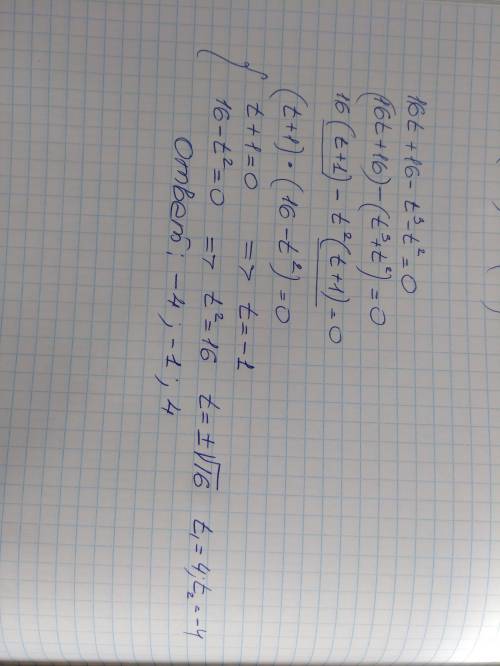 16t + 16 - t³ - t² = 0
(16t + 16) - (t³ + t²) = 0
16(t + 1) - t²(t + 1) = 0
(t + 1) · (16 - t²) = 0
t + 1 = 0 => t = -1
16 - t² = 0 => t² = 16 t = ±√16 t₁ = 4; t₂ = -4
Ответ: -4; -1; 4